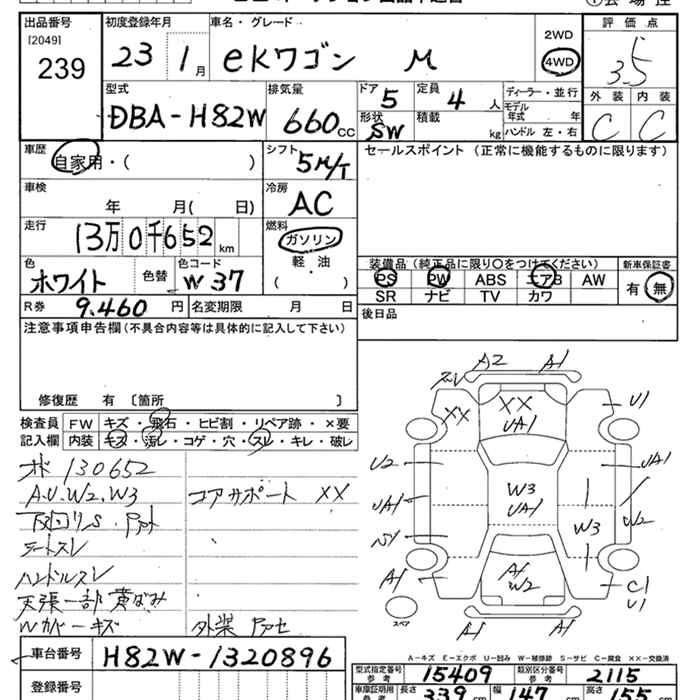 出品番号 初度登録年月 車名・グレード 評価点
[2049]
239
23 1月 eKワゴン M 2WD 4WD 3.5
型式 排気量 ドア 定員 ディーラー・並行 外装 内装
DBA-H82W 660cc 5 4人 モデル年式 年 C C
形状 積載
SW kg ハンドル 左・右
車歴 シフト セールスポイント (正常に機能するものに限ります)
自家用・( ) 5M/T
車検 冷房
年 月( 日) AC
走行 燃料
13万0千652km ガソリン
軽・油
( )
色 色替 色コード 装備品 (純正品に限り○をつけてください) 新車保証書
ホワイト W37 PS PW ABS エアB AW 有・無
SR ナビ TV カワ
R券 9.460円 名変期限 月 日 後日品
注意事項申告欄 (不具合内容等は具体的に記入して下さい)
修復歴 有 〔箇所 〕
検査員 FW キズ・飛石・ヒビ割・リペア跡・×要
記入欄 内装 キズ・汚レ・コゲ・穴・スレ・キレ・破レ
130652
A.U.W2.W3 コアサポート XX
シートスレ
ハンドルスレ
天張一部黄ばみ
Wカバーキズ 外装
A2 A1
XX XX UA1 U1
U2 UA1
UA1 W3 UA1 W2
W3
A1 A1 W2 C1 U1
スペア
A1 A1
A-キズ E-エクボ U-凹み W-補修跡 S-サビ C-腐食 XX-交換済
車台番号 H82W-1320896 型式指定番号 参考 15409 類別区分番号 参考 2115
登録番号 車庫証明用 参考 長さ 339cm 幅 147cm 高さ 155cm